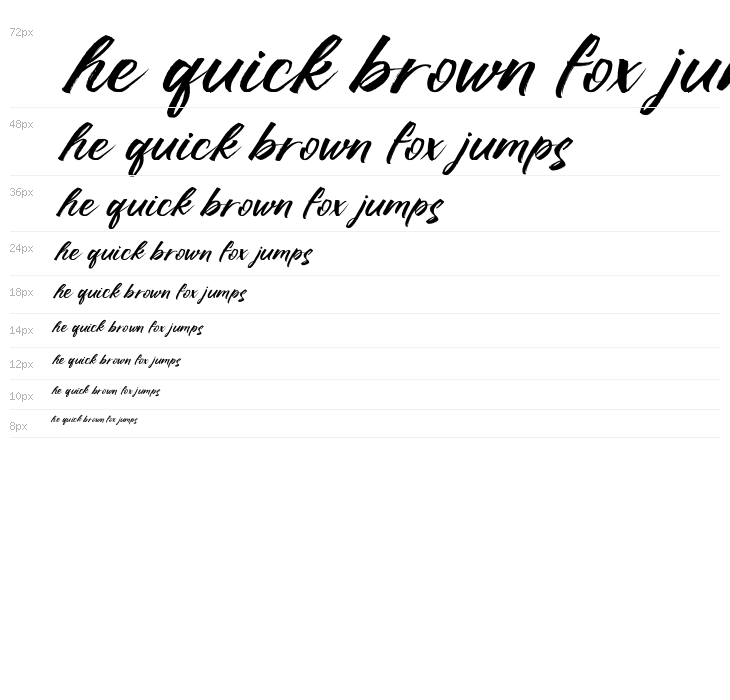 72px he quick brown fox jum
48px he quick brown fox jumps
36px he quick brown fox jumps
24px he quick brown fox jumps
18px he quick brown fox jumps
14px he quick brown fox jumps
12px he quick brown fox jumps
10px he quick brown fox jumps
8px he quick brown fox jumps